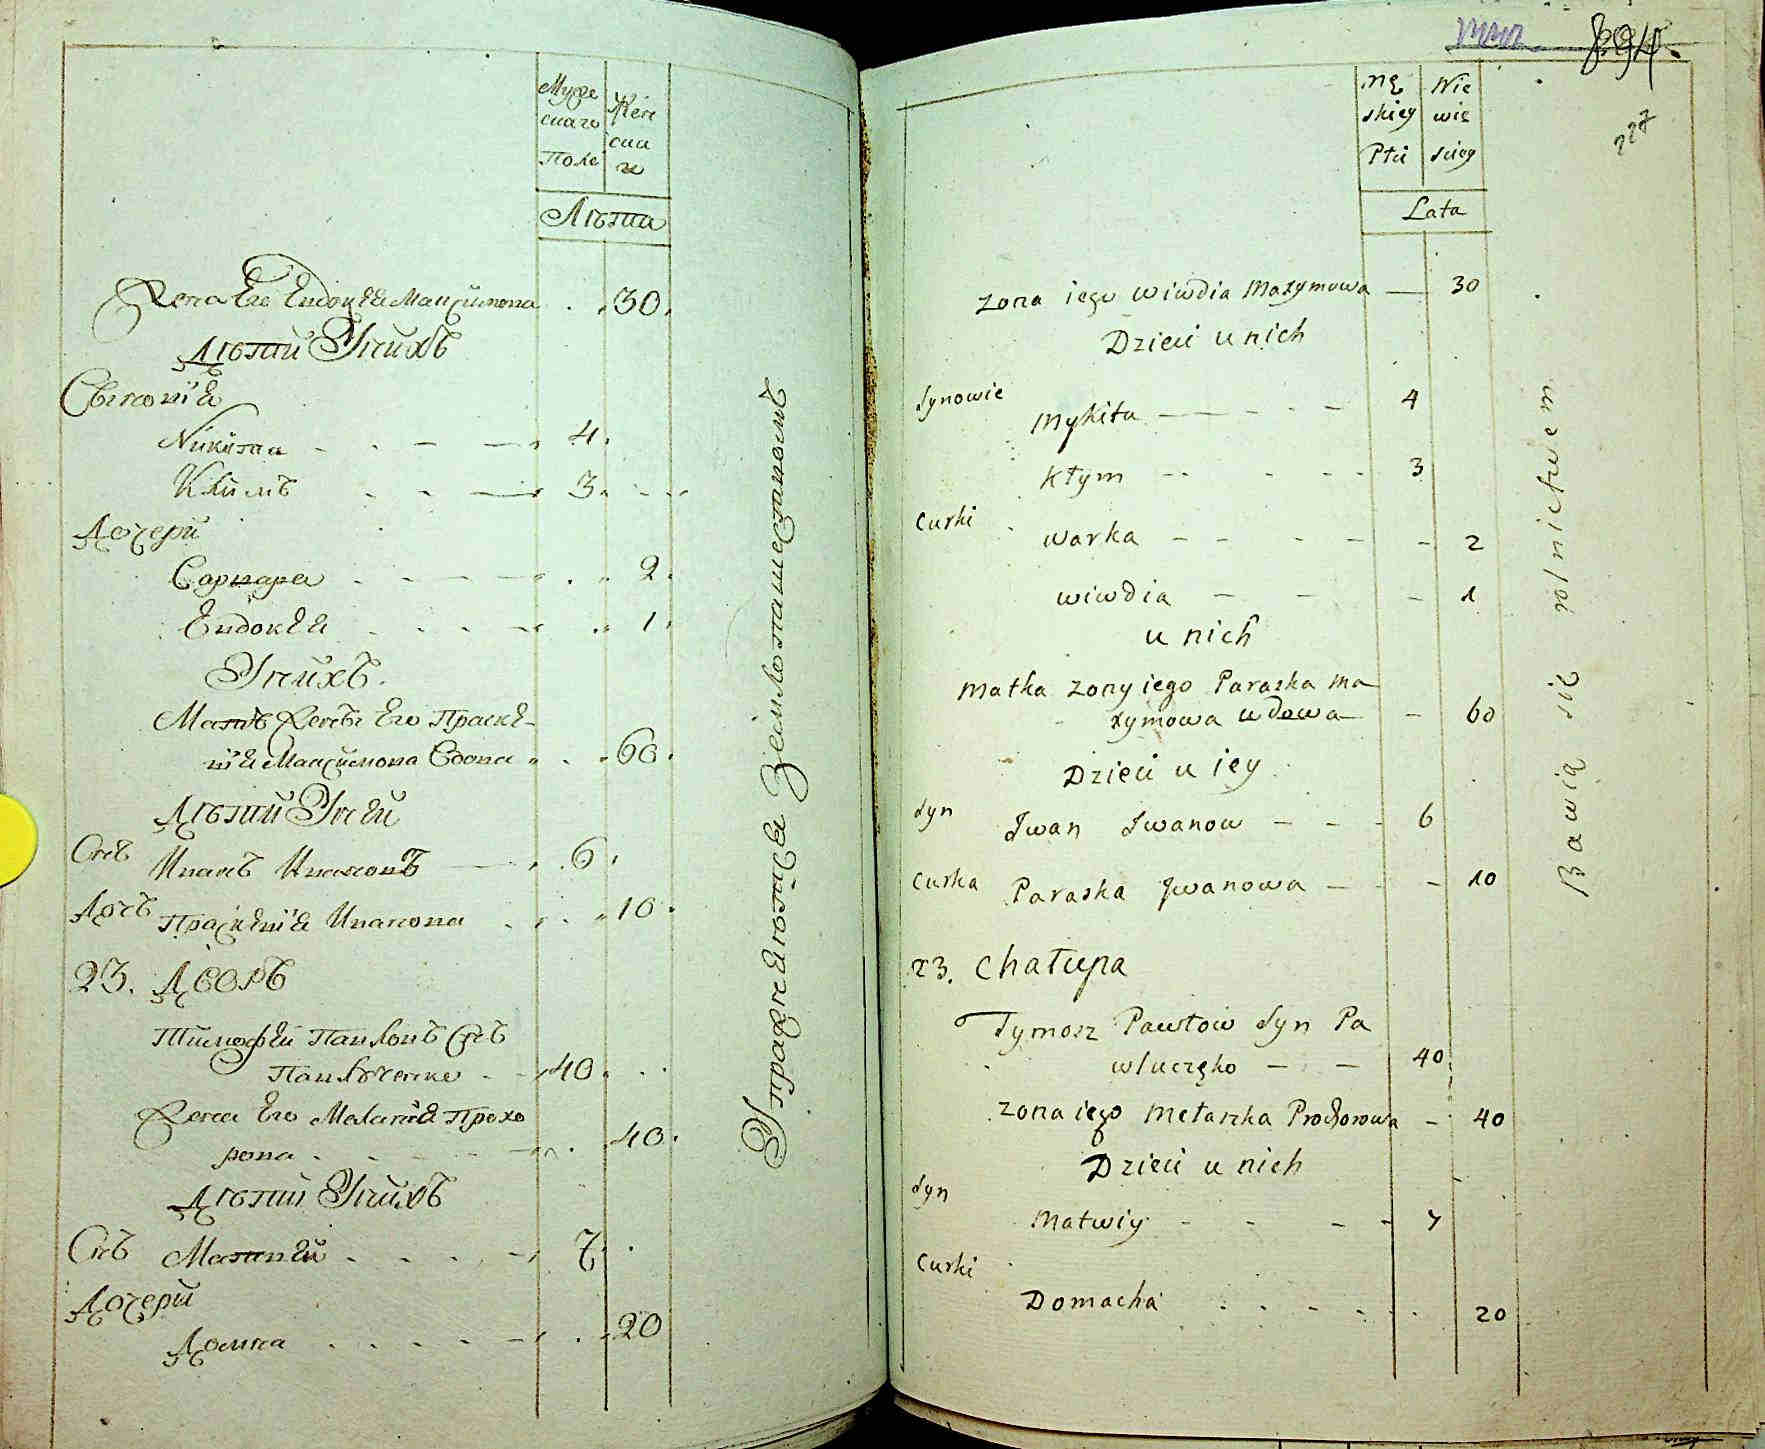 Мужескаго Поле
Женскаге
Лѣта
Жена Его Евдокея Мацимова 30
Дѣтй У нихъ
Сыновїя
Никита 4
Климъ 3
Дочерй
Варвара 2
Евдокея 1
У нихъ
Мать Жены Его Праске-
вїя Мацимова Вдова 60
Дѣтй У ней
Снъ Иванъ Ивановъ 6
Дочь Праскевїя Иванова 10
23. Дворъ
Тимофей Павловъ Снъ
Павлученко 40
Жена Его Меланїя Прохо
рова 40
Дѣтй У нихъ
Снъ Матвей 7
Дочерй
Домна 20
Упражняютца Землепашествомъ
894.
227
Mę
skiey
Płci
Nie
wie
sciey
Lata
zona iego wiwdia Maxymowa 30
Dzieci u nich
Synowie
Mykita 4
Kłym 3
Curki
warka 2
wiwdia 1
u nich
Matka zony iego Paraska Ma
xymowa wdowa 60
Dzieci u iey
Syn Iwan Iwanow 6
Curka Paraska Iwanowa 10
23. Chałupa
Tymosz Pawłow Syn Pa
wluczęko 40
zona iego Melaszka Prochorowa 40
Dzieci u nich
Syn
Matwiy 7
Curki
Domacha 20
Bawią się rolnictwem